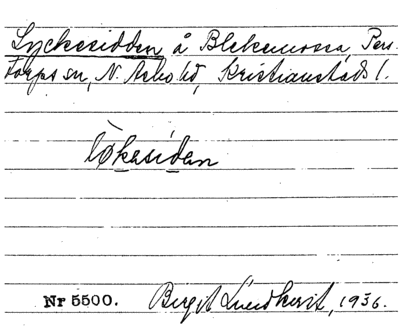 Lyckesidden å Blekemossa, Pers-
torps sn, N. Åsbo hd, Kristianstads l.
lö̀kesídan
Nr 5500. Birgit Lindkvist, 1936.